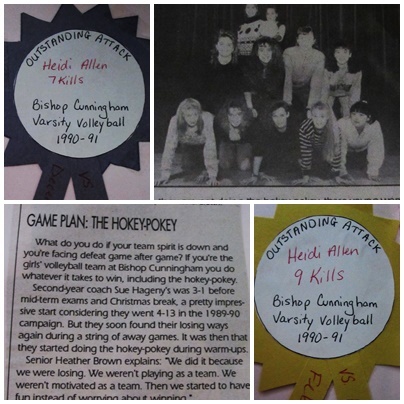 OUTSTANDING ATTACK
Heidi Allen
7 Kills
Bishop Cunningham
Varsity Volleyball
1990-91
VS
GAME PLAN: THE HOKEY-POKEY
What do you do if your team spirit is down and
you're facing defeat game after game? If you're the
girls' volleyball team at Bishop Cunningham you do
whatever it takes to win, including the hokey-pokey.
Second-year coach Sue Hagerty's was 3-1 before
mid-term exams and Christmas break, a pretty impres-
sive start considering they went 4-13 in the 1989-90
campaign. But they soon found their losing ways
again during a string of away games. It was then that
they started doing the hokey-pokey during warm-ups.
Senior Heather Brown explains: "We did it because
we were losing. We weren't playing as a team. We
weren't motivated as a team. Then we started to have
fun instead of worrying about winning."
OUTSTANDING ATTACK
Heidi Allen
9 Kills
Bishop Cunningham
Varsity Volleyball
1990-91
VS